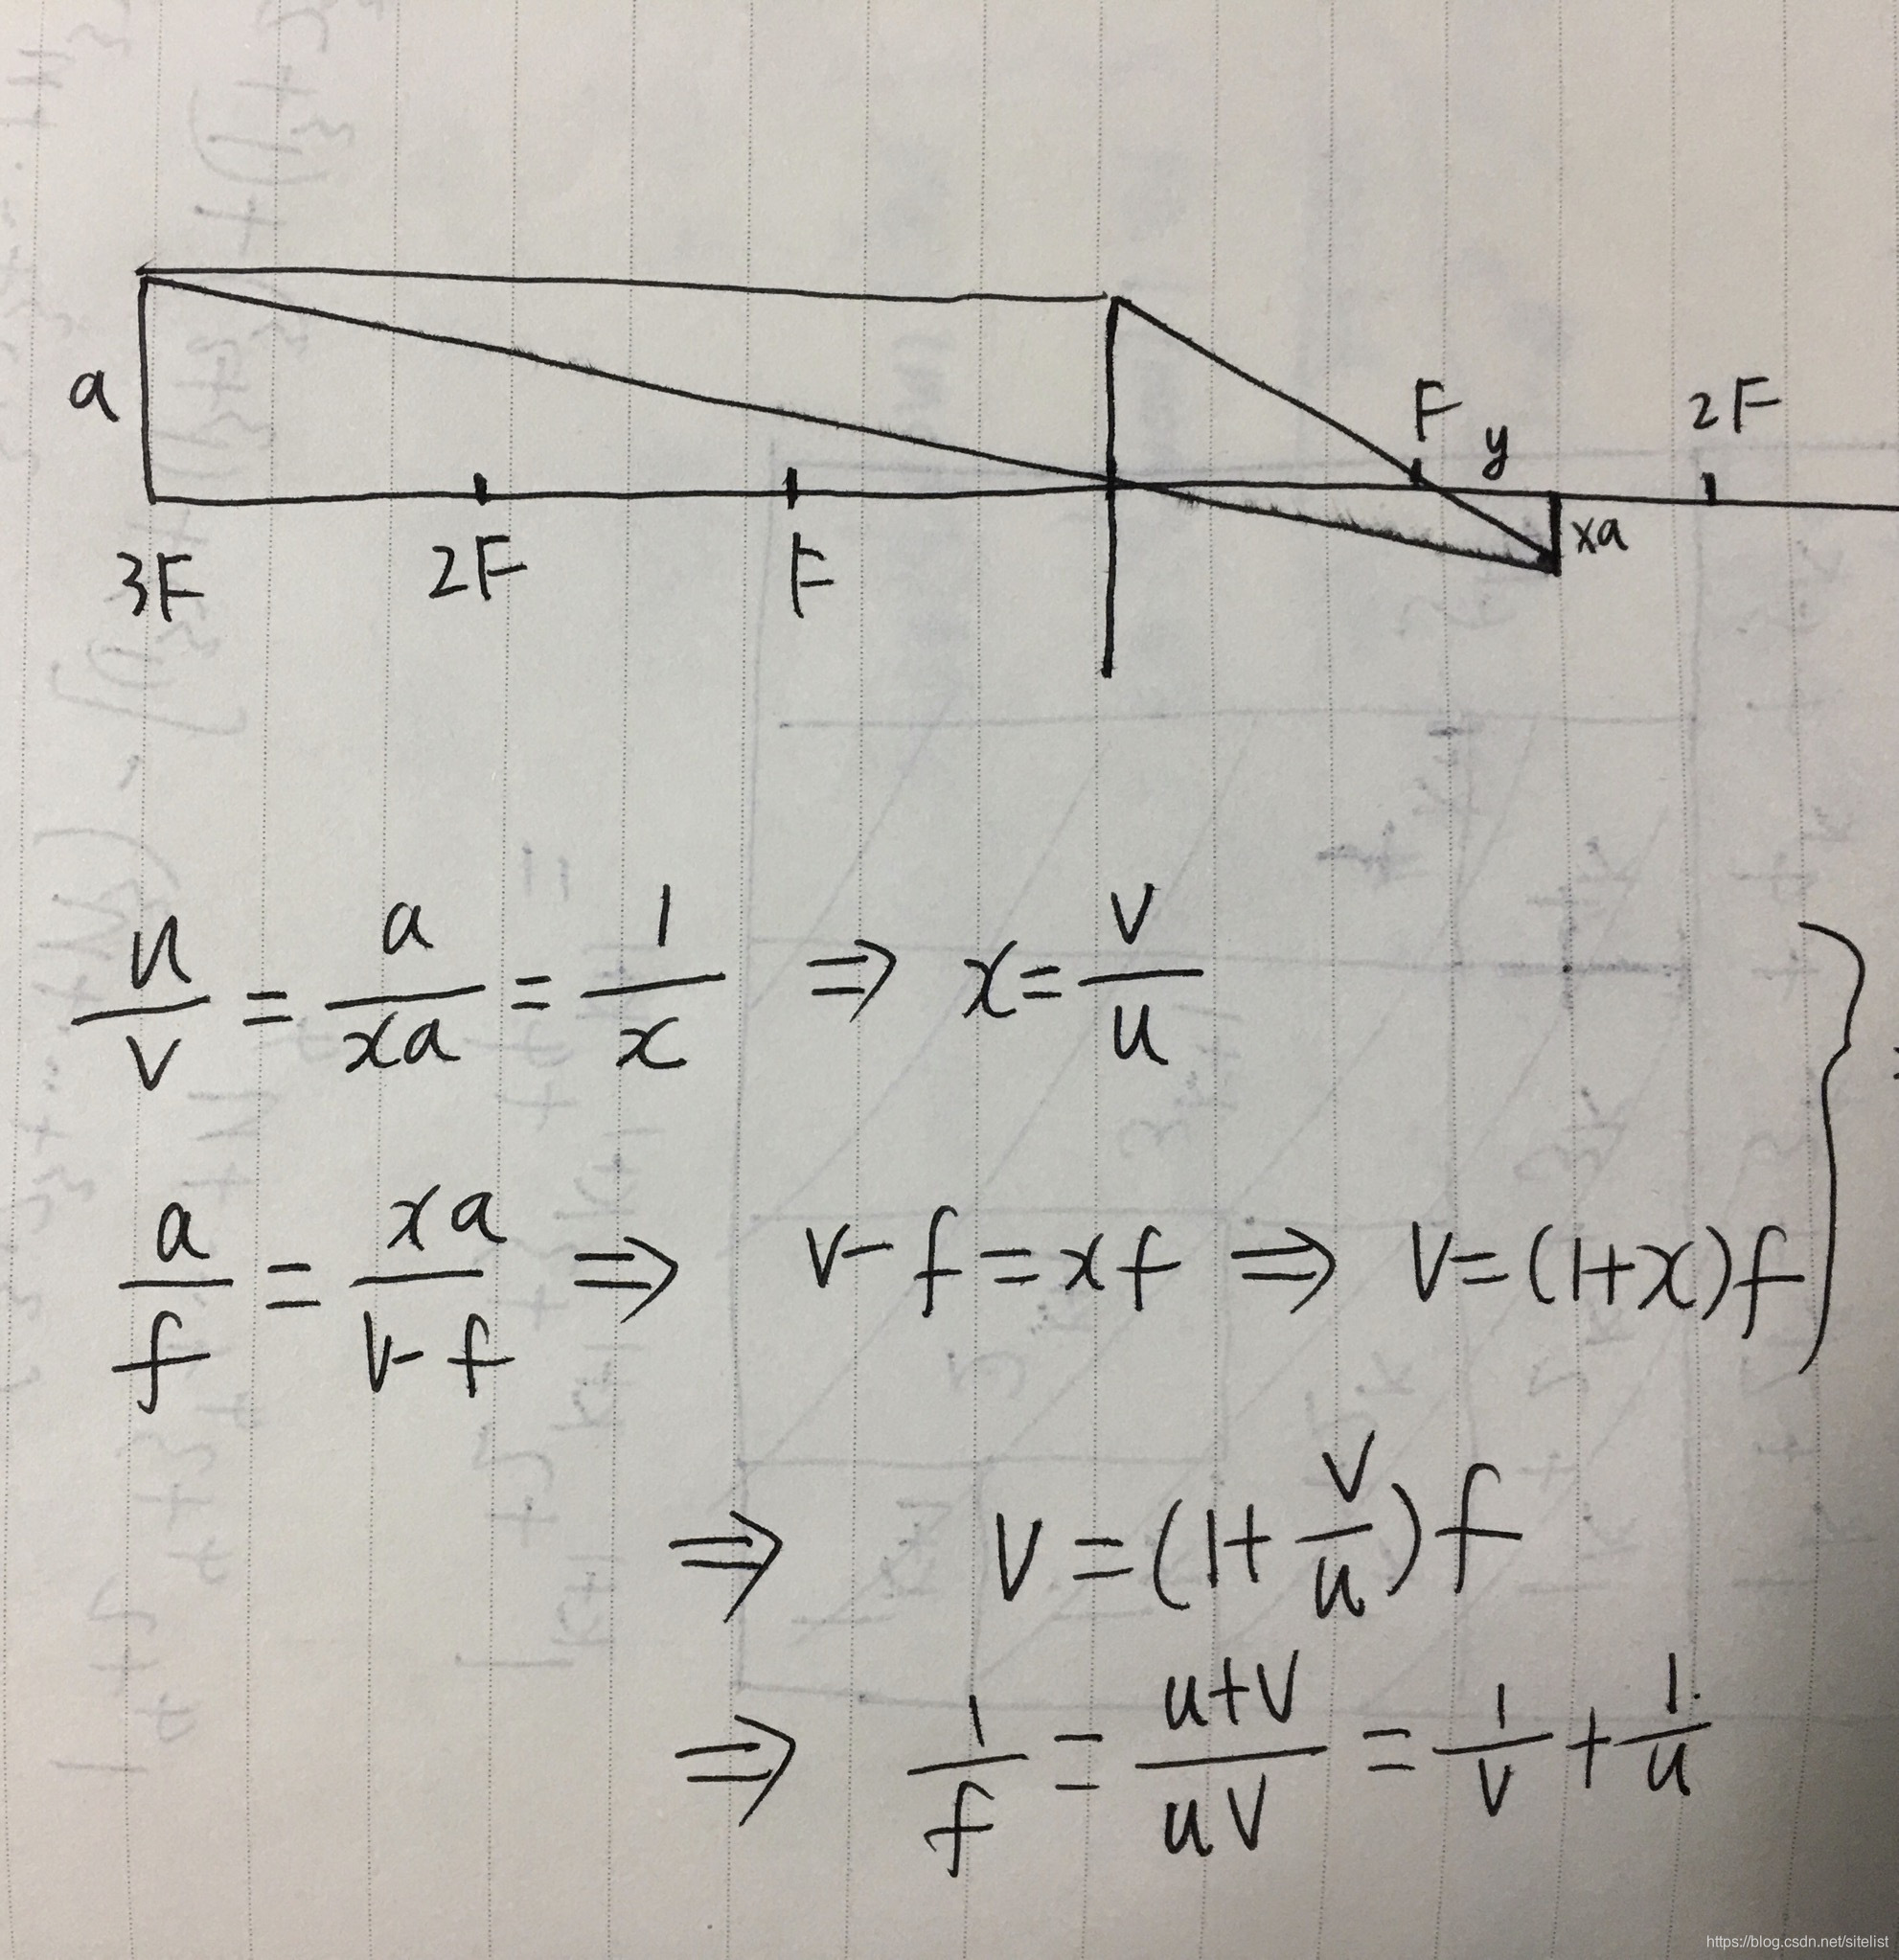 a
F y 2F
xa
3F 2F F
u/v = a/xa = 1/x ⇒ x = v/u
a/f = xa/(v-f) ⇒ v-f = xf ⇒ v = (1+x)f
⇒ v = (1+v/u)f
⇒ 1/f = (u+v)/(uv) = 1/v + 1/u
https://blog.csdn.net/sitelist